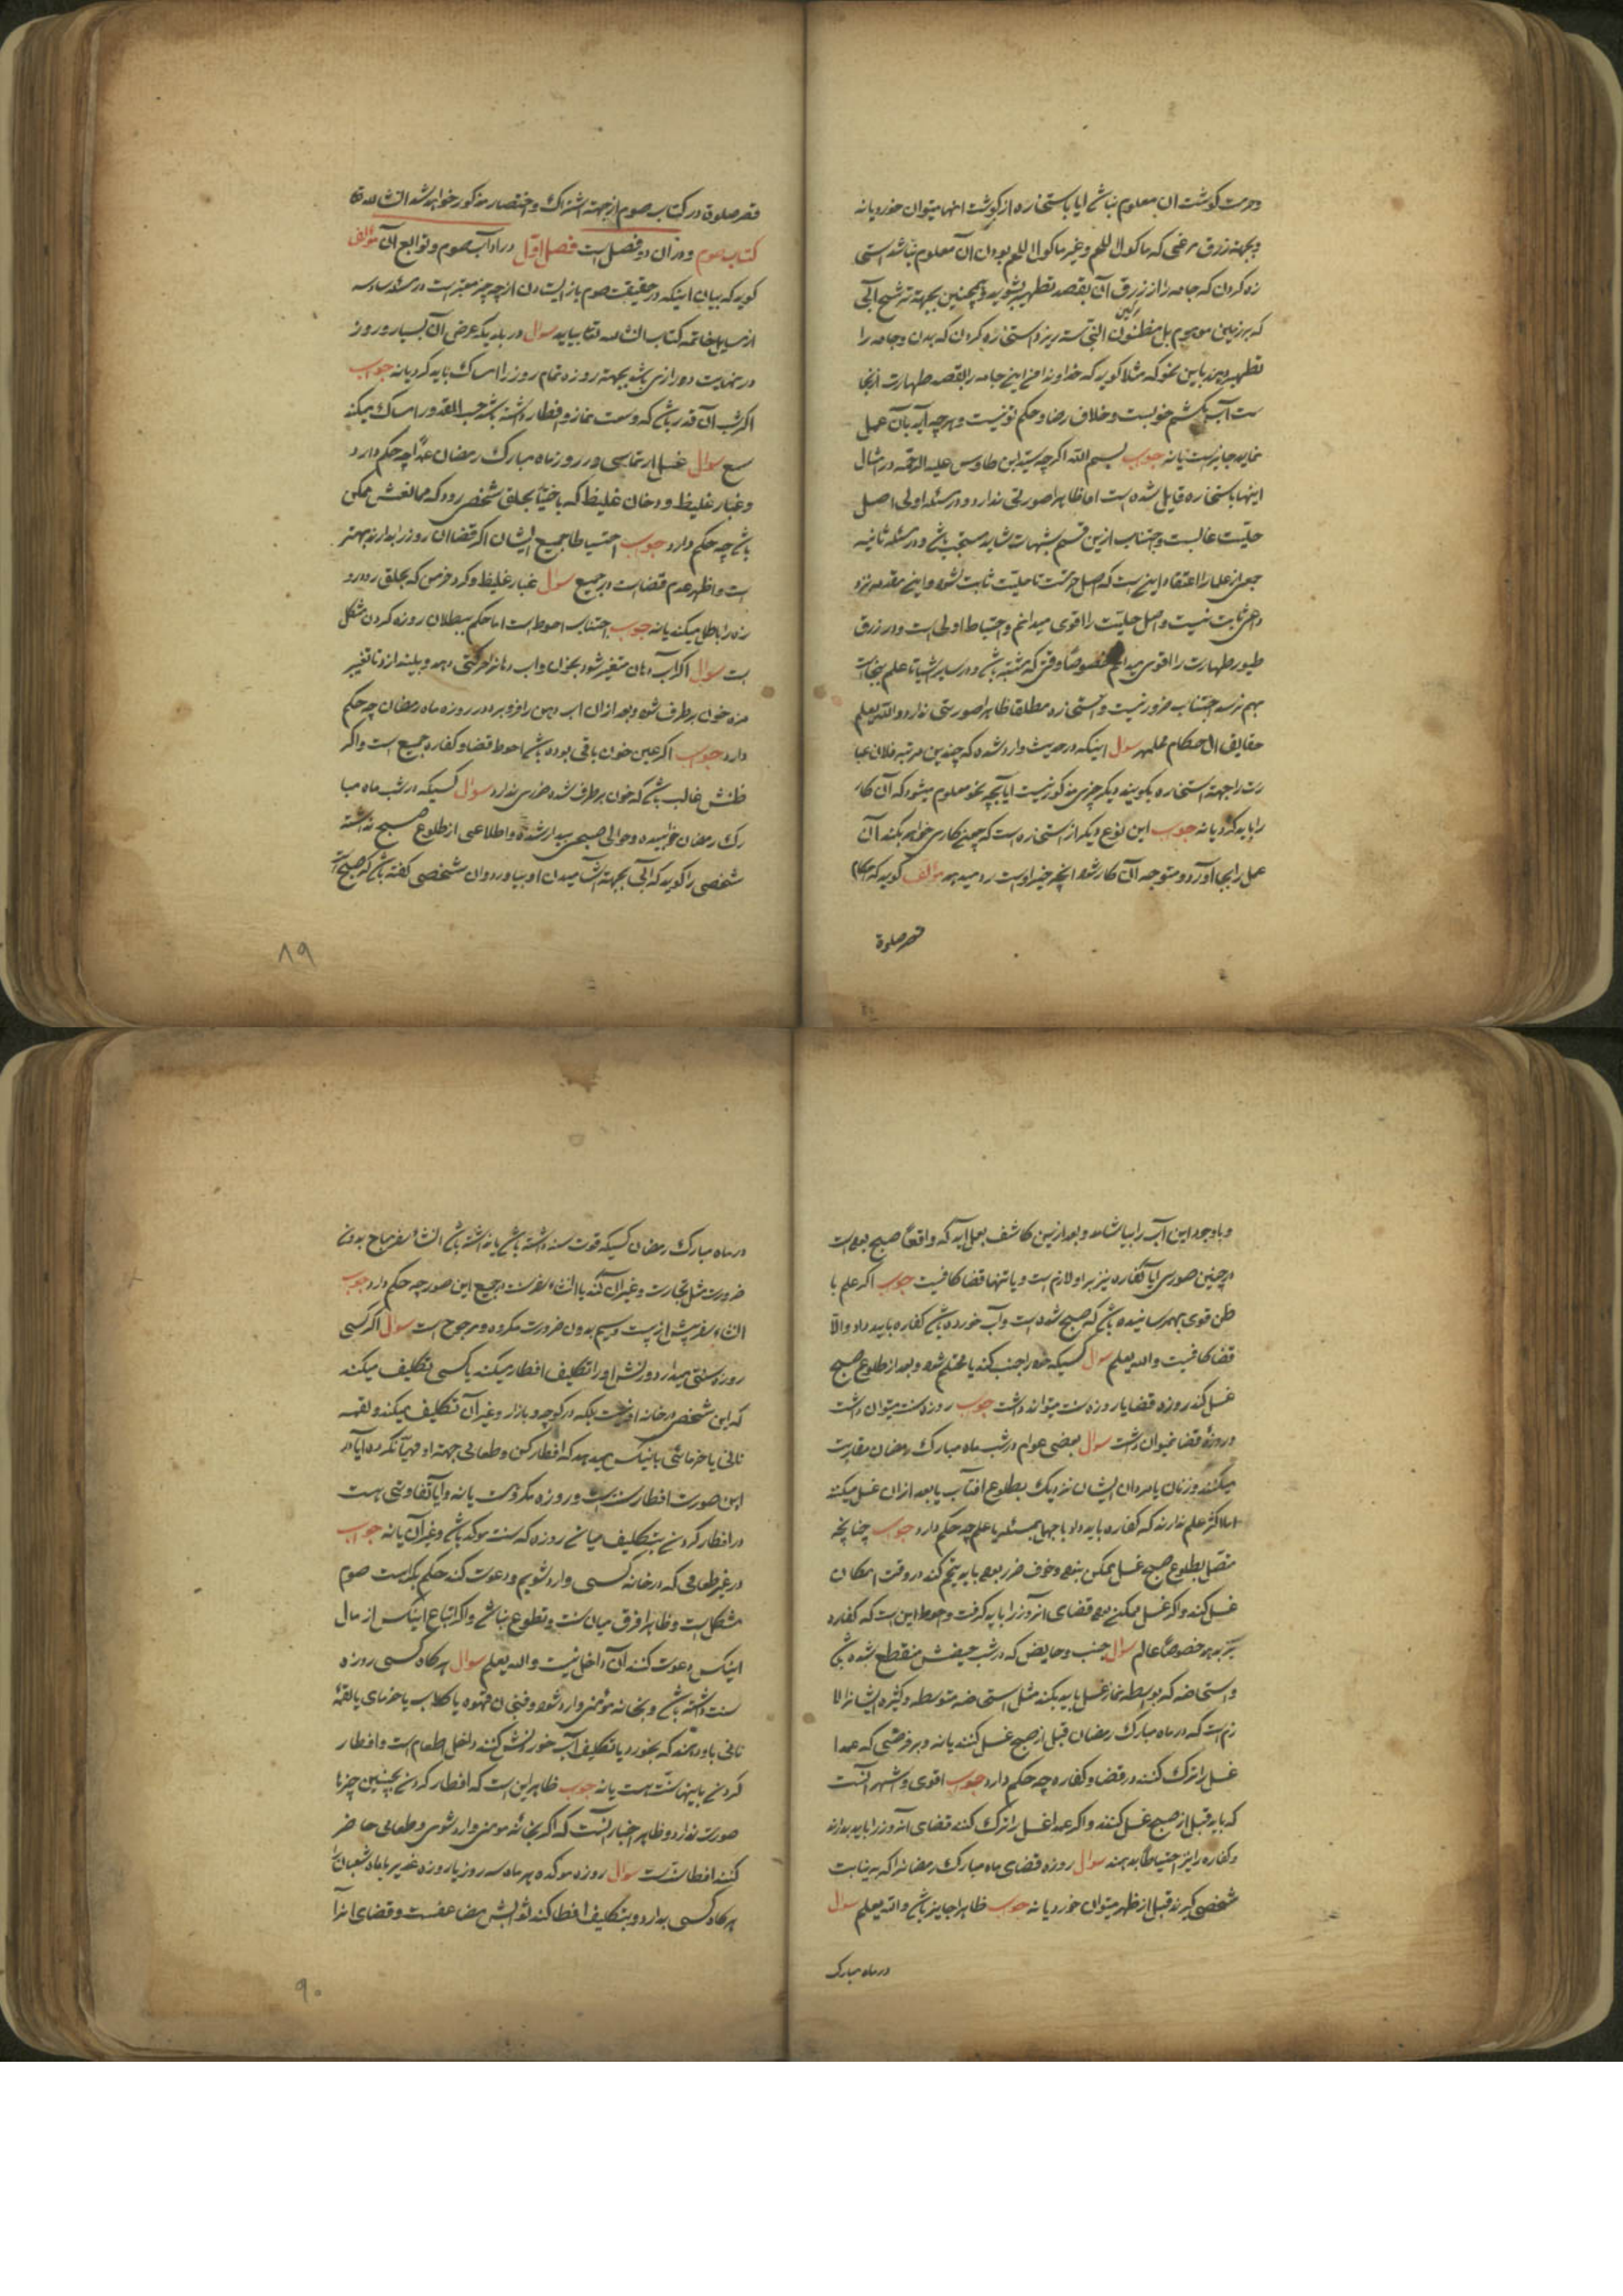 وحرمت گوشت ان معلوم نباشد ایا باستخاره از گوشت اینها میتوان خورد یا نه
وبجهته زرق مرغی که ماکول اللحم وغیر ماکول اللحم بودن آن معلوم نباشد استخا
ره کردن که جامه را از زرق آن بقصد تطهیر بشوید وهمچنین بجهته ترشح آبی
که بر زمین موهوم بل مظنون النجاسته ریزد استخاره کردن که بدن وجامه را
تطهیر دهند باین نحو که مثلا گوید که خداوندا من اینجامه را بقصد طهارت ازنجا
ست آب بکشم خوبست وخلاف رضا وحکم تو نیست وهرچه آید بآن عمل
نماید جایز است یا نه جواب بسم الله اگرچه سید ابن طاوس علیه الرحمه در امثال
اینها باستخاره قایل شده است اما ظاهرا صورتی ندارد ودر مسئله اولی اصل
حلیت غالبست واجتناب ازین قسم شبهات شاید مستحب باشد ودر مسئله ثانیه
جمعی از علما را اعتقاد اینست که اصل حرمتست تا حلیت ثابت شود واین مقدمه نزد
داعی ثابت نیست واصل حلیت را اقوی میدانم واحتیاط اولی است ودر زرق
طیور طهارت را اقوی میدانم خصوصاً وقتی که مشتبه باشد ودر سایر اشیا تا علم بنجاست
بهم نرسد اجتناب ضرور نیست واستخاره مطلقا ظاهرا صورتی ندارد والله یعلم
حقایق الاحکام مطهر سوال اینکه در حدیث وارد شده که چندین مرتبه فلان عبا
رت را جهته استخاره بگویند ودیگر چیزی مذکور نیست ایا بچه نحو معلوم میشود که آن کار
را باید کرد یا نه جواب این نوع دیگر از استخاره است که چون کاری خواهد بکند آن
عمل را بجا آورد ومتوجه آن کار شود انچه خیر اوست رو میدهد مؤلف گوید که احکام
قصر صلوة
قصر صلوة در کتاب صوم از جهته اشتراک واختصار مذکور خواهد شد انشاءالله تعا
کتاب صوم ودر ان دو فصل است فصل اول در اداب صوم وتوابع آن مؤلف
گوید که بیان اینکه در حقیقت صوم باز ایستادن از چه چیز معتبر است در مسئله سادسه
از مسایل خاتمه کتاب انشاءالله تعا بیاید سوال در بلدیکه عرض آن بسیار وروز
در نهایت درازی باشد بجهته روزه تمام روز را امساک باید کرد یا نه جواب
اگر شب آن قدر باشد که وسعت نماز وافطار داشته باشد حسب المقدور امساک میکند
سع سوال غسل ارتماسی در روز ماه مبارک رمضان عمداً چه حکم دارد
وغبار غلیظ ودخان غلیظ که باختیار بحلق شخص رود که ممانعتش ممکن
باشد چه حکم دارد جواب احتیاطا جمیع ایشان اگر قضا ان روز را بدارند بهتر
است واظهر عدم قضاست در جمیع سوال غبار غلیظ وگرد خرمن که بحلق رود رو
زه را باطل میکند یا نه جواب اجتناب احوط است اما حکم ببطلان روزه کردن مشکل
است سوال اگر آب دهان متغیر شود بخون واب دهانرا حرکتی دهد وبیندازد تا تغییر
مزه خون برطرف شود وبعد ازان اب دهن را فرو برد در روزه ماه رمضان چه حکم
دارد جواب اگر عین خون باقی بوده باشد احوط قضا وکفاره جمیع است واگر
ظنش غالب باشد که خون برطرف شده ضرری ندارد سوال کسیکه در شب ماه مبا
رک رمضان خوابیده وحوالی صبحی بیدار شده واطلاعی از طلوع صبح نداشته
شخصی را گوید که آبی بجهته آشامیدن او بیاورد وان شخصی گفته باشد که صبح است
وباوجود این آب را بیاشامد وبعد ازین کاشف بعمل اید که واقعاً صبح بوده است
در چنین صورتی آیا کفاره نیز بر او لازم است ویا تنها قضا کافیست جواب اگر علم یا
ظن قوی بهم رسانیده باشد که صبح شده است وآب خورده باشد کفاره باید داد والا
قضا کافیست والله یعلم سوال کسیکه خود را جنب کند یا محتلم شود وبعد از طلوع صبح
غسل کند روزه قضا یا روزه سنت میتواند داشت جواب روزه سنت میتوان داشت
وروزهٔ قضا نمیتوان داشت سوال بعضی عوام در شب ماه مبارک رمضان مقاربت
میکنند وزنان یا مردان ایشان نزدیک بطلوع افتاب یا بعد ازان غسل میکنند
اما اکثر علم ندارند که کفاره باید داد یا جهل بمسئله یا علم چه حکم دارد جواب چنانچه
متصل بطلوع صبح غسل ممکن نبوده وخوف ضرر بوده باید تیمم کند در وقت امکان
غسل کند واگر غسل ممکن بوده قضای انروز را باید گرفت واحوط این است که کفاره
نیز بدهد خصوصاً عالم سوال جنب وحایض که در شب حیضش منقطع شده باشد
واستحاضه که بواسطه نماز غسل باید بکند مثل استحاضه متوسطه وکثیره ایشانرا لا
زم است که در ماه مبارک رمضان قبل از صبح غسل کنند یا نه وبر فرضی که عمدا
غسل را ترک کنند در قضا وکفاره چه حکم دارد جواب اقوی واشهر آنست
که باید قبل از صبح غسل کنند واگر عمدا غسل را ترک کنند قضای آنروز را باید بدارند
وکفاره را نیز احتیاطا بدهند سوال روزه قضای ماه مبارک رمضانرا که به نیابت
شخصی گیرند قبل از ظهر میتوان خورد یا نه جواب ظاهرا جایز باشد والله یعلم سوال
در ماه مبارک
در ماه مبارک رمضان کسیکه قوت سنه داشته باشد یا نداشته باشد انشاء سفر مباح بدون
ضرورت مثل تجارت وغیر آن کند با انشاء سفر سنت در جمیع این صور چه حکم دارد جواب
انشاء سفر پیش از بیست وسیم بدون ضرورت مکروه ومرجوح است سوال اگر کسی
روزه سنتی میدارد وزنش اورا تکلیف افطار میکند یا کسی تکلیف میکند
که این شخص در خانه او نیست بلکه در کوچه وبازار وغیر آن تکلیف میکند ولقمه
نانی یا خرمائی باینکس میدهد که افطار کن وطعامی جهته او مهیا نکرده ایا در
این صورت افطار سنت است وروزه مکروه است یا نه وآیا تفاوتی هست
در افطار کردن بتکلیف میان روزه که سنت موکد باشد وغیر آن یا نه جواب
در غیر طعامی که در خانه کسی وارد شویم ودعوت کند حکم بکراهت صوم
مشکل است وظاهرا فرق میان سنت وتطوع نباشد واگر اتباع اینکس از مال
اینکس دعوت کنند آن داخل نیست والله یعلم سوال هرگاه کسی روزه
سنت داشته باشد وبخانه مؤمنی وارد شود وفنجان قهوه یا گلاب یا خرمای یا لقمهٔ
نانی باو دهند که بخورد یا تکلیف آب خوردنش کنند داخل اطعام است وافطار
کردن باینها سنت هست یا نه جواب ظاهر این است که افطار کردن بچنین چیزها
صورت ندارد وظاهر اخبار آنست که اگر بخانهٔ مومنی وارد شوی وطعامی حاضر
کنند افطار سنت است سوال روزه موکده هر ماه سه روز یا روزه غدیر یا ماه شعبان را
هرگاه کسی بدارد وبتکلیف افطار کند ثوابش مضاعفست وقضای انرا